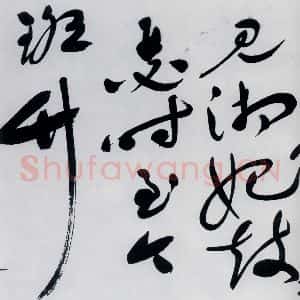 见湘妃鼓
瑟时至今
班竹
Shufawang.CN